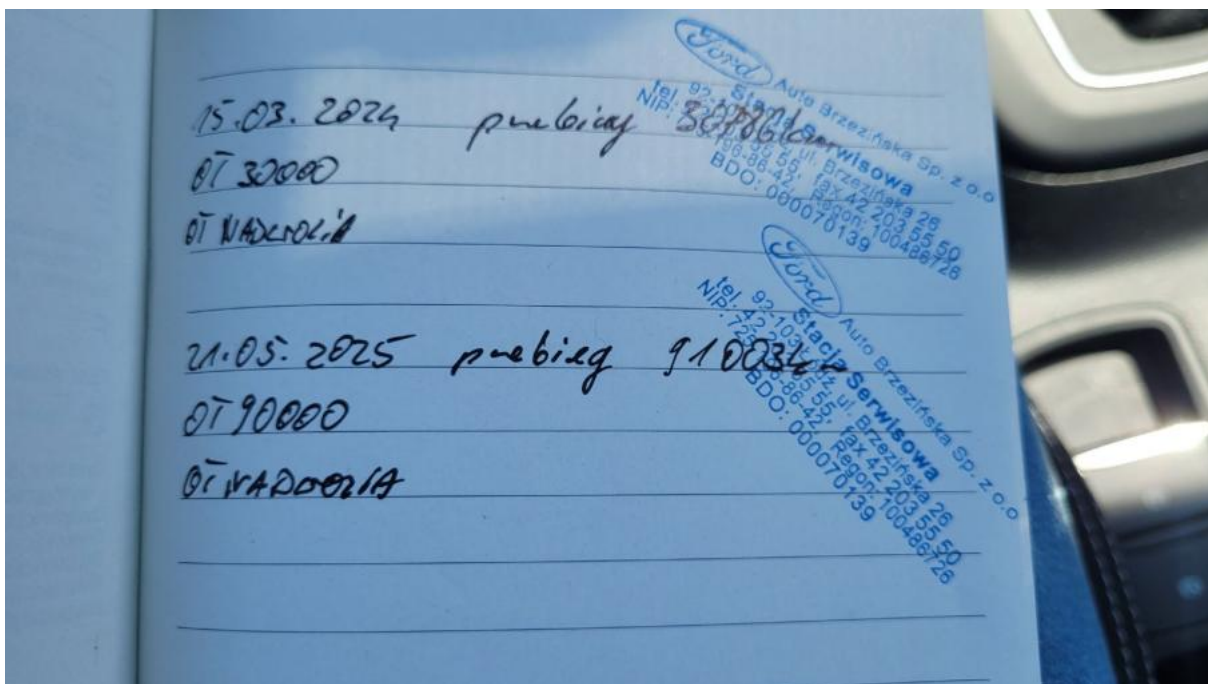 15.03.2024 przebieg
OT 30000
OT NADWOZIA
Ford Auto Brzezińska Sp. z o.o
Stacja Serwisowa
ul. Brzezińska 26
tel. fax 42 203 55 50
NIP: Regon: 100486726
BDO: 000070139
21.05.2025 przebieg 91003km
OT 90000
OT NADWOZIA
Ford Auto Brzezińska Sp. z o.o
Stacja Serwisowa
92-103 ul. Brzezińska 26
tel. 42 fax 42 203 55 50
NIP: 86-42, Regon: 100486726
BDO: 000070139